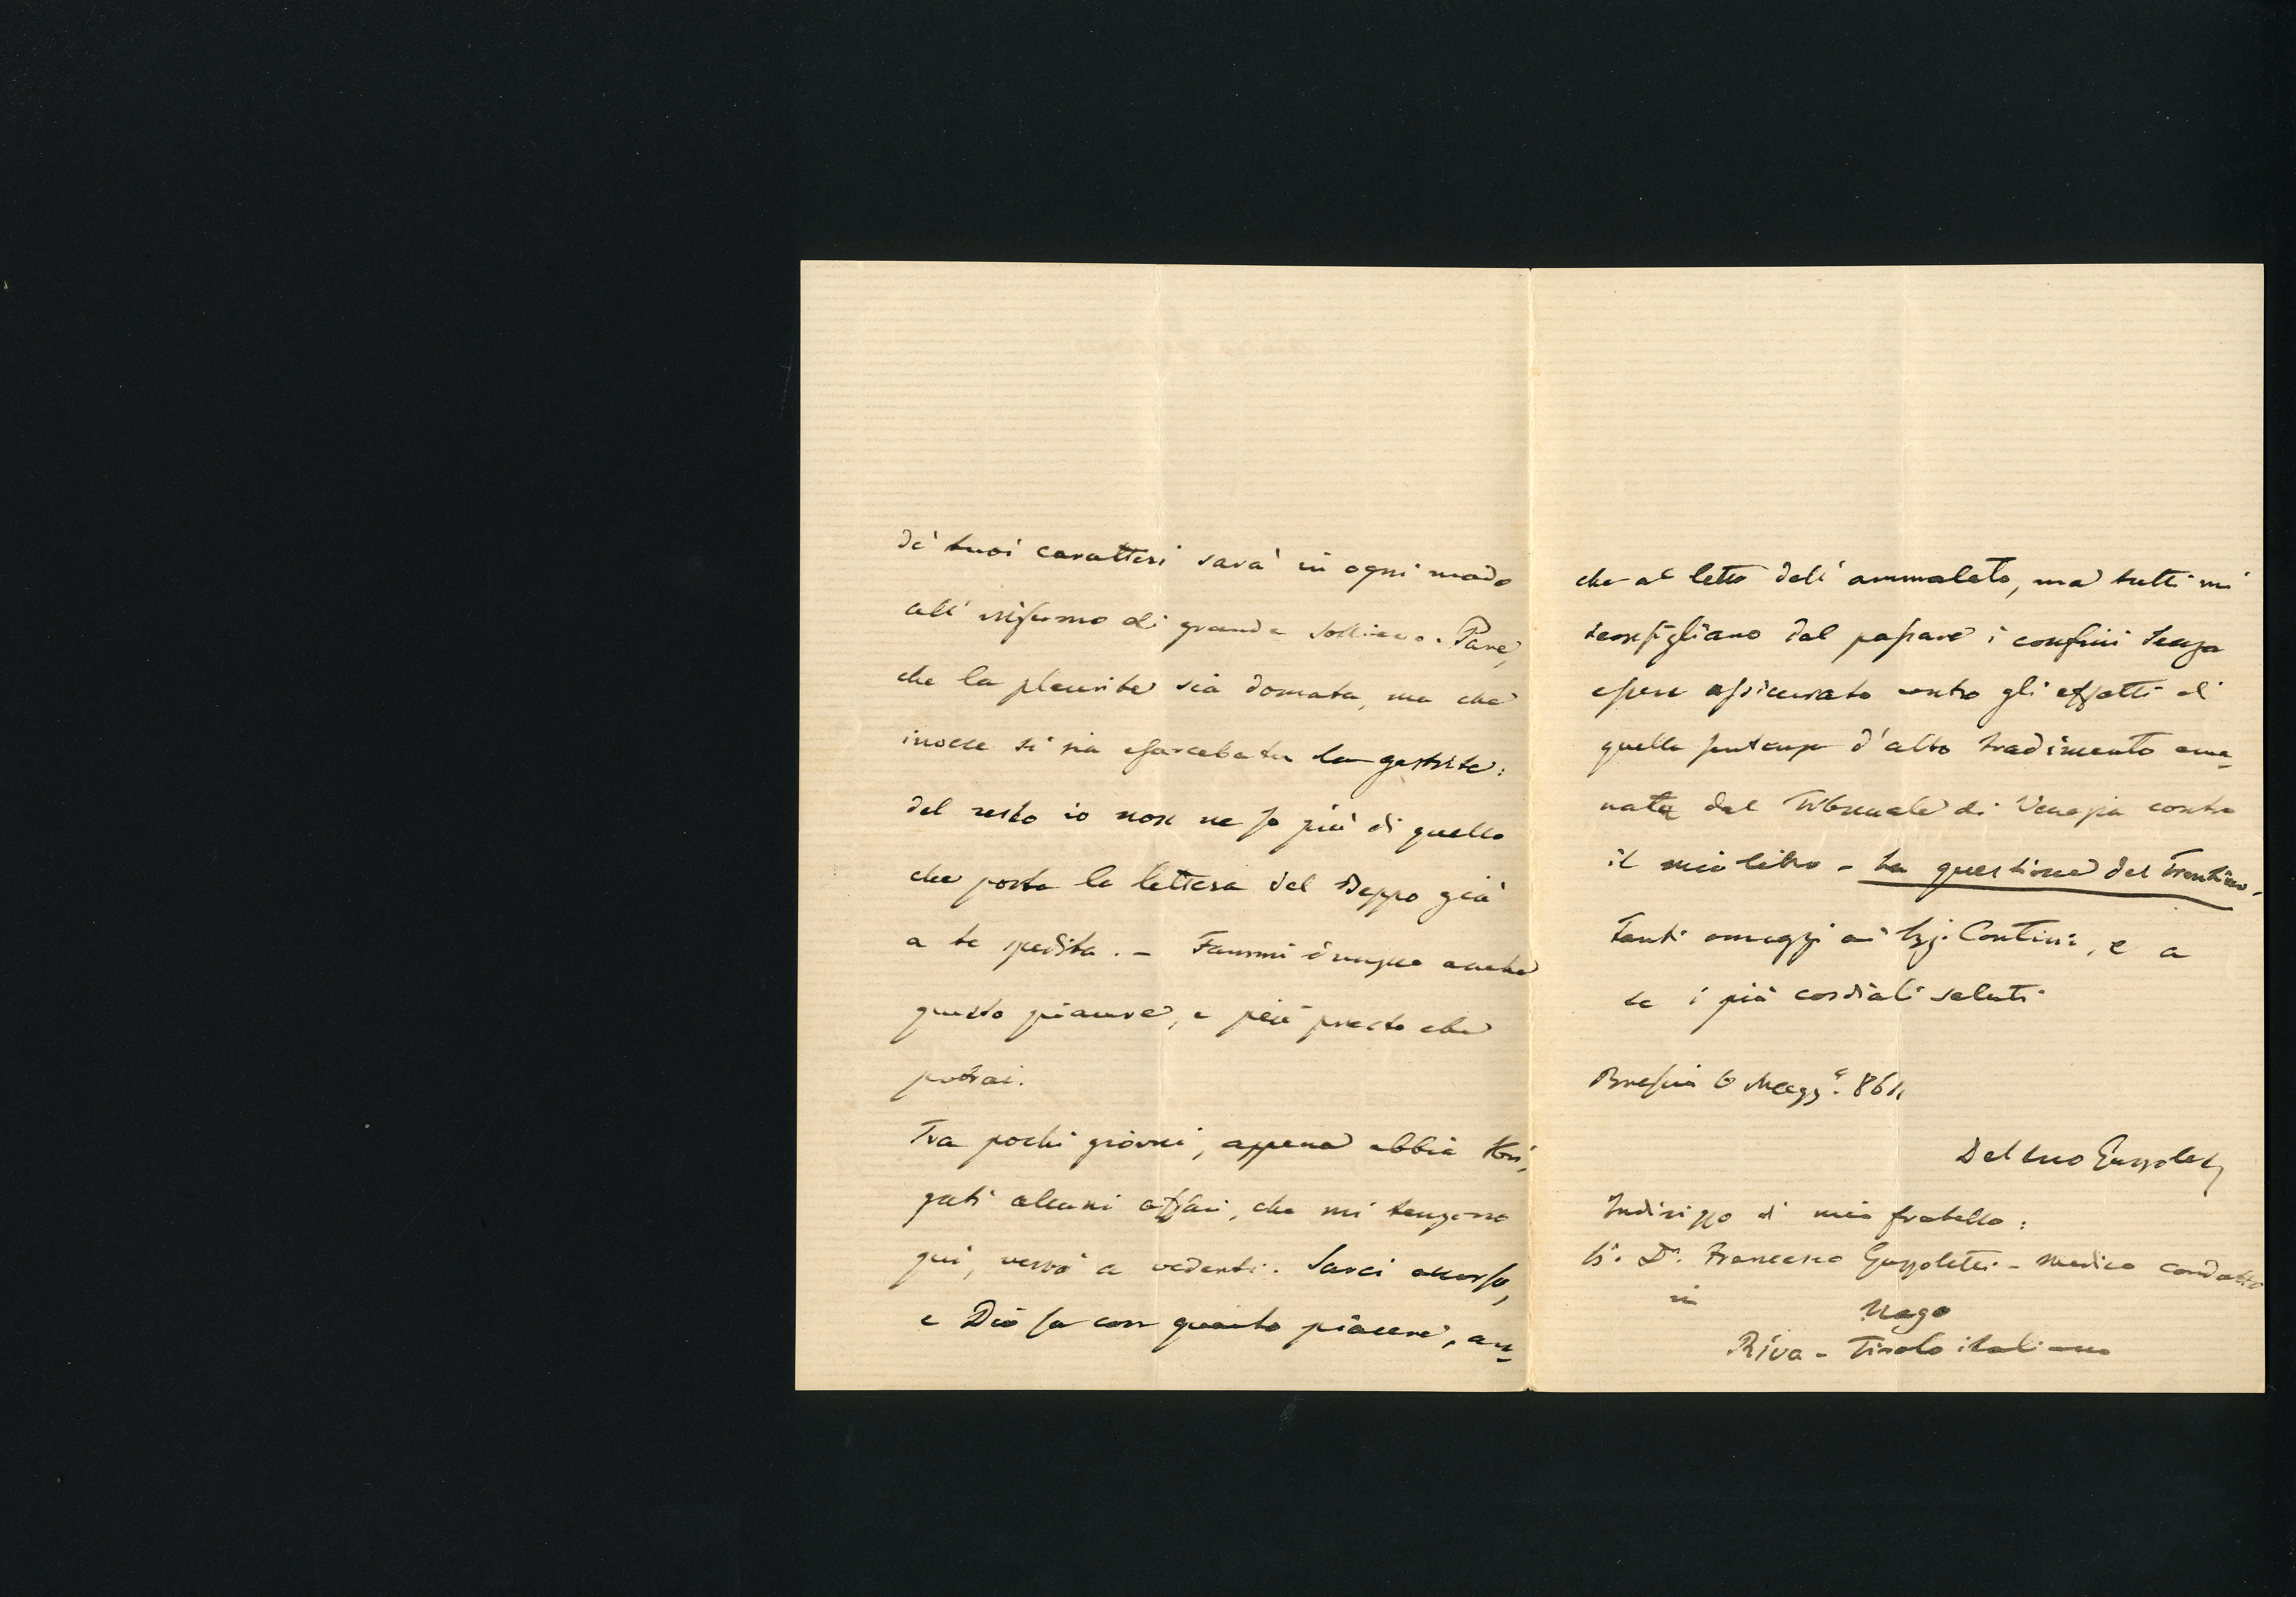 de' tuoi caratteri sarà in ogni modo
all' infermo di grande sollievo. Pare,
che la pleurite sia domata, ma che
invece si sia esacerbata la gastrite:
del resto io non ne so più di quello
che porta la lettera del Beppo già
a te spedita. - Fammi dunque anche
questo piacere, e più presto che
potrai.
Tra pochi giorni, appena abbia sbri-
gati alcuni affari, che mi tengono
qui, verrò a vederti. Sarei accorso,
e Dio sa con quanto piacere, an-
che al letto dell' ammalato, ma tutti mi
sconsigliano dal passare i confini senza
essere assicurato contro gli effetti di
quella sentenza d'alto tradimento ema-
nata dal Tribunale di Venezia contro
il mio libro - La questione del Trentino.
Tanti omaggi ai Sigg. Contini, e a
te i più cordiali saluti.
Brescia 6 Magg.º 861.
Del tuo Gazzoletti
Indirizzo di mio fratello:
Sr. Dr. Francesco Gazzoletti - medico condotto
in Nago
Riva - Tirolo italiano